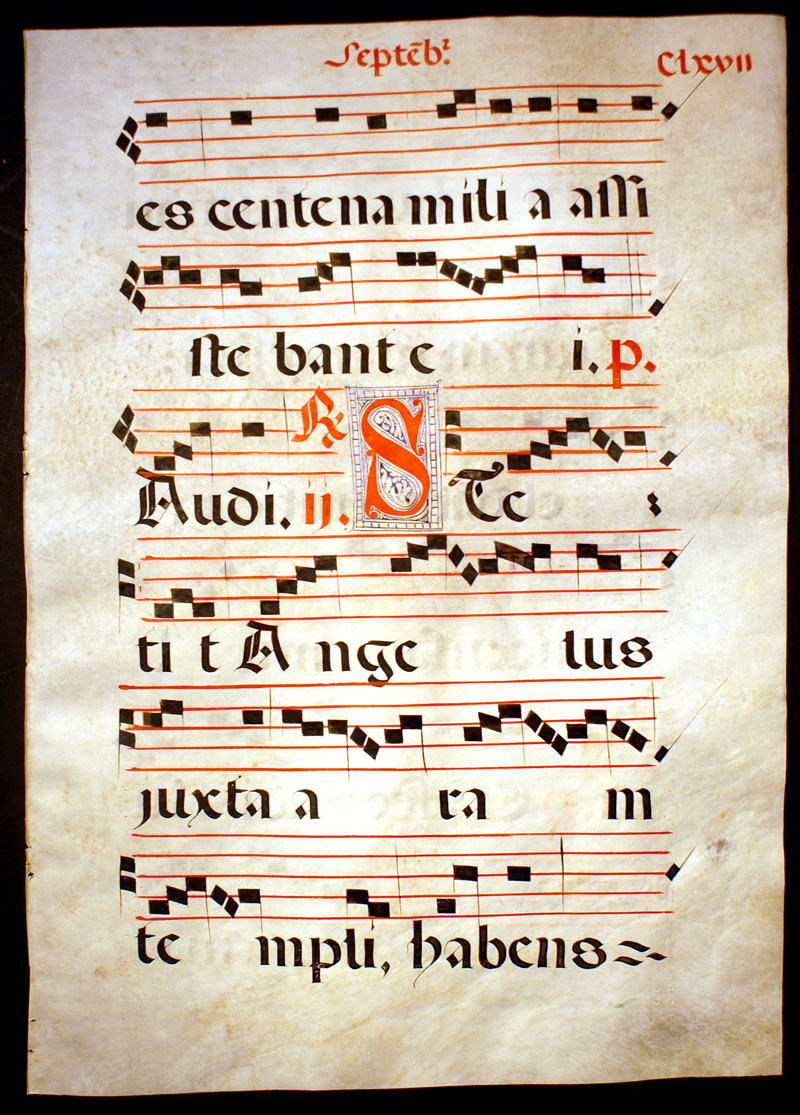 Septēbꝛ. Clxvii
es centena mili a assi
ste bant e i. p.
Audi. ij. ℟ S Te
ti t Ange lus
juxta a ra m
te mpli, habens